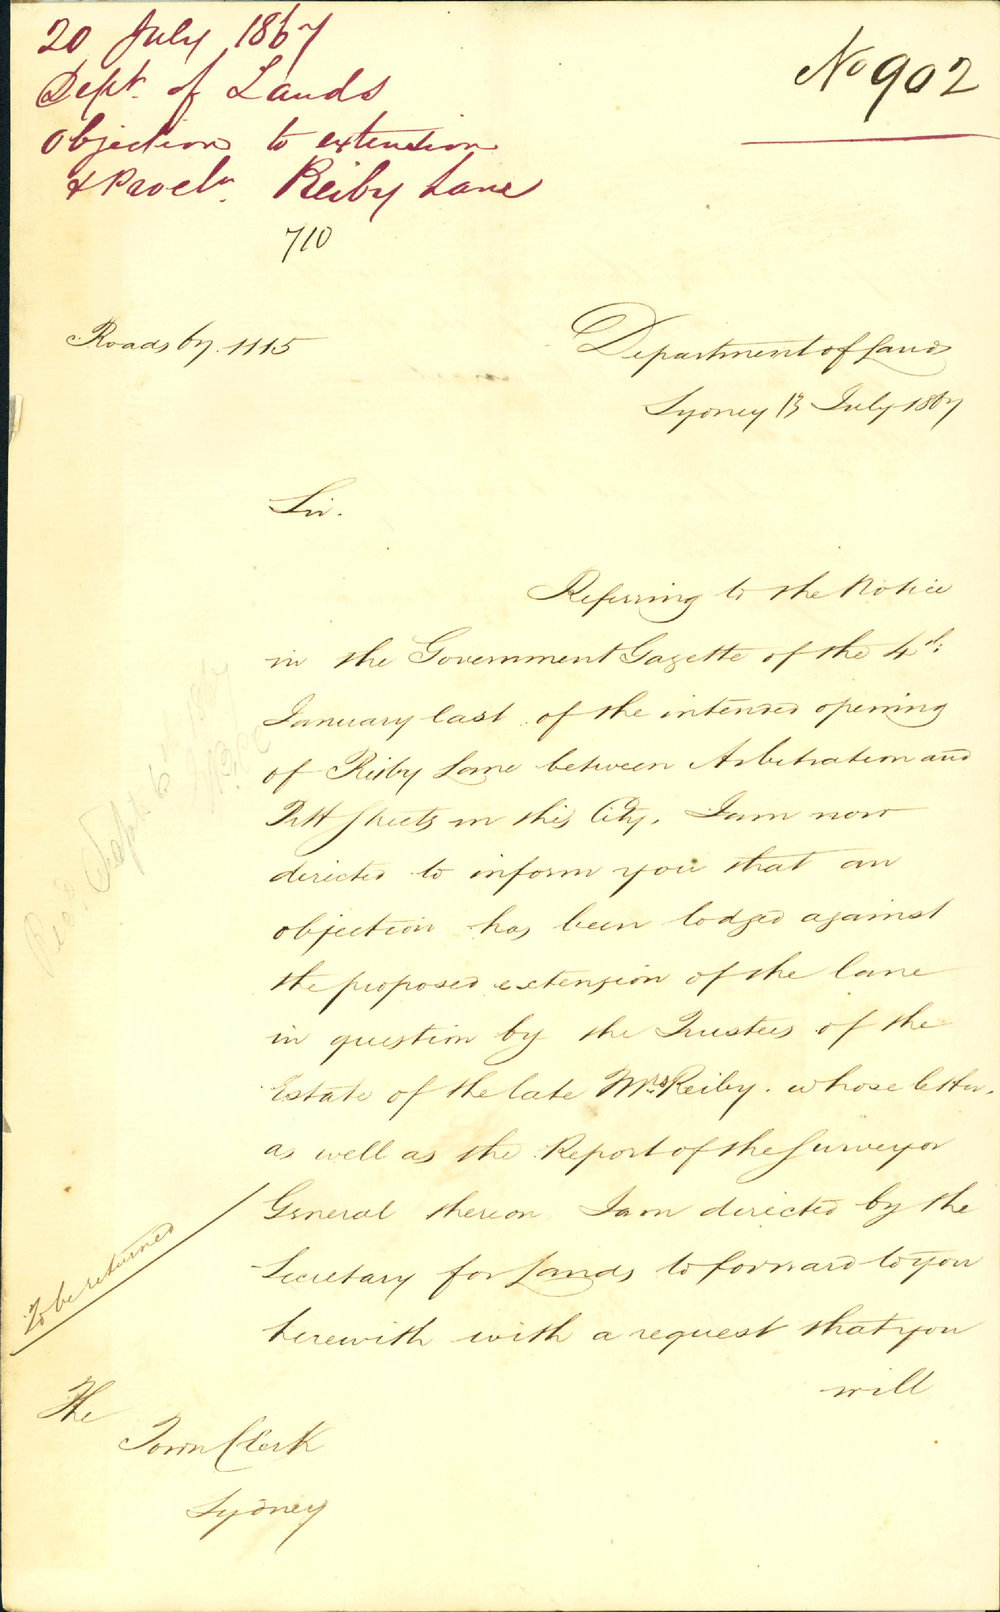 20 July 1867
Dept. of Lands
Objection to extension
& Procln. Reiby Lane
No 902
710
Roads by. 1115
Department of Lands
Sydney 13 July 1867
Sir.
Referring to the Notice
in the Government Gazette of the 4th:
January last of the intended opening
of Reiby Lane between Arbitration and
Pitt Streets in this City. I am now
directed to inform you that an
objection has been lodged against
the proposed extension of the lane
in question by the Trustees of the
Estate of the late Mrs. Reiby. whose letter.
as well as the Report of the Surveyor
General thereon I am directed by the
Secretary for Lands to forward to you
herewith with a request that you
will
Recd. Sept. 6
To be returned
The
Town Clerk
Sydney